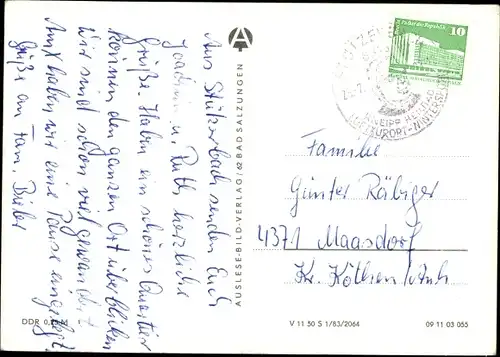 Aus Stützerbach senden Euch
Joachim u. Ruth herzliche
Grüße. Haben ein schönes Quartier
können den ganzen Ort überblicken
Wir sind schon viel gewandert.
haben wir eine Pause eingelegt.
Grüße an Fam. Bieler
AUSLESE-BILD-VERLAG / 62 BAD SALZUNGEN
DDR
10
KNEIPP HEILBAD
KURORT-WINTERSPORT
Familie
Günter Räbiger
4371 Maasdorf
Kr. Köthen/Anh
V 11 50 S 1/83/2064
09 11 03 055